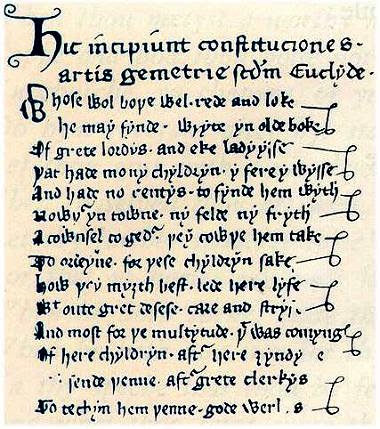 Hic incipiunt constituciones
artis gemetrie scdm Euclyde.
Whose wol boþe wel rede and loke
he may fynde wryte yn olde boke
Of grete lordys and eke ladyysse
þat hade mony chyldryn y fere y wysse
And hade no rentys to fynde hem wyth
Nowþr yn towne ny felde ny fryth
A cownsel togedr þey cowþe hem take
To ordeyne for þese chyldryn sake
How þey myȝth best lede here lyfe
Wt oute gret desese care and stryf
And most for þe multytude þt was comyng
Of here chyldryn aftr here
sende þenne aftr grete clerkys
To techyn hem þenne gode werkys